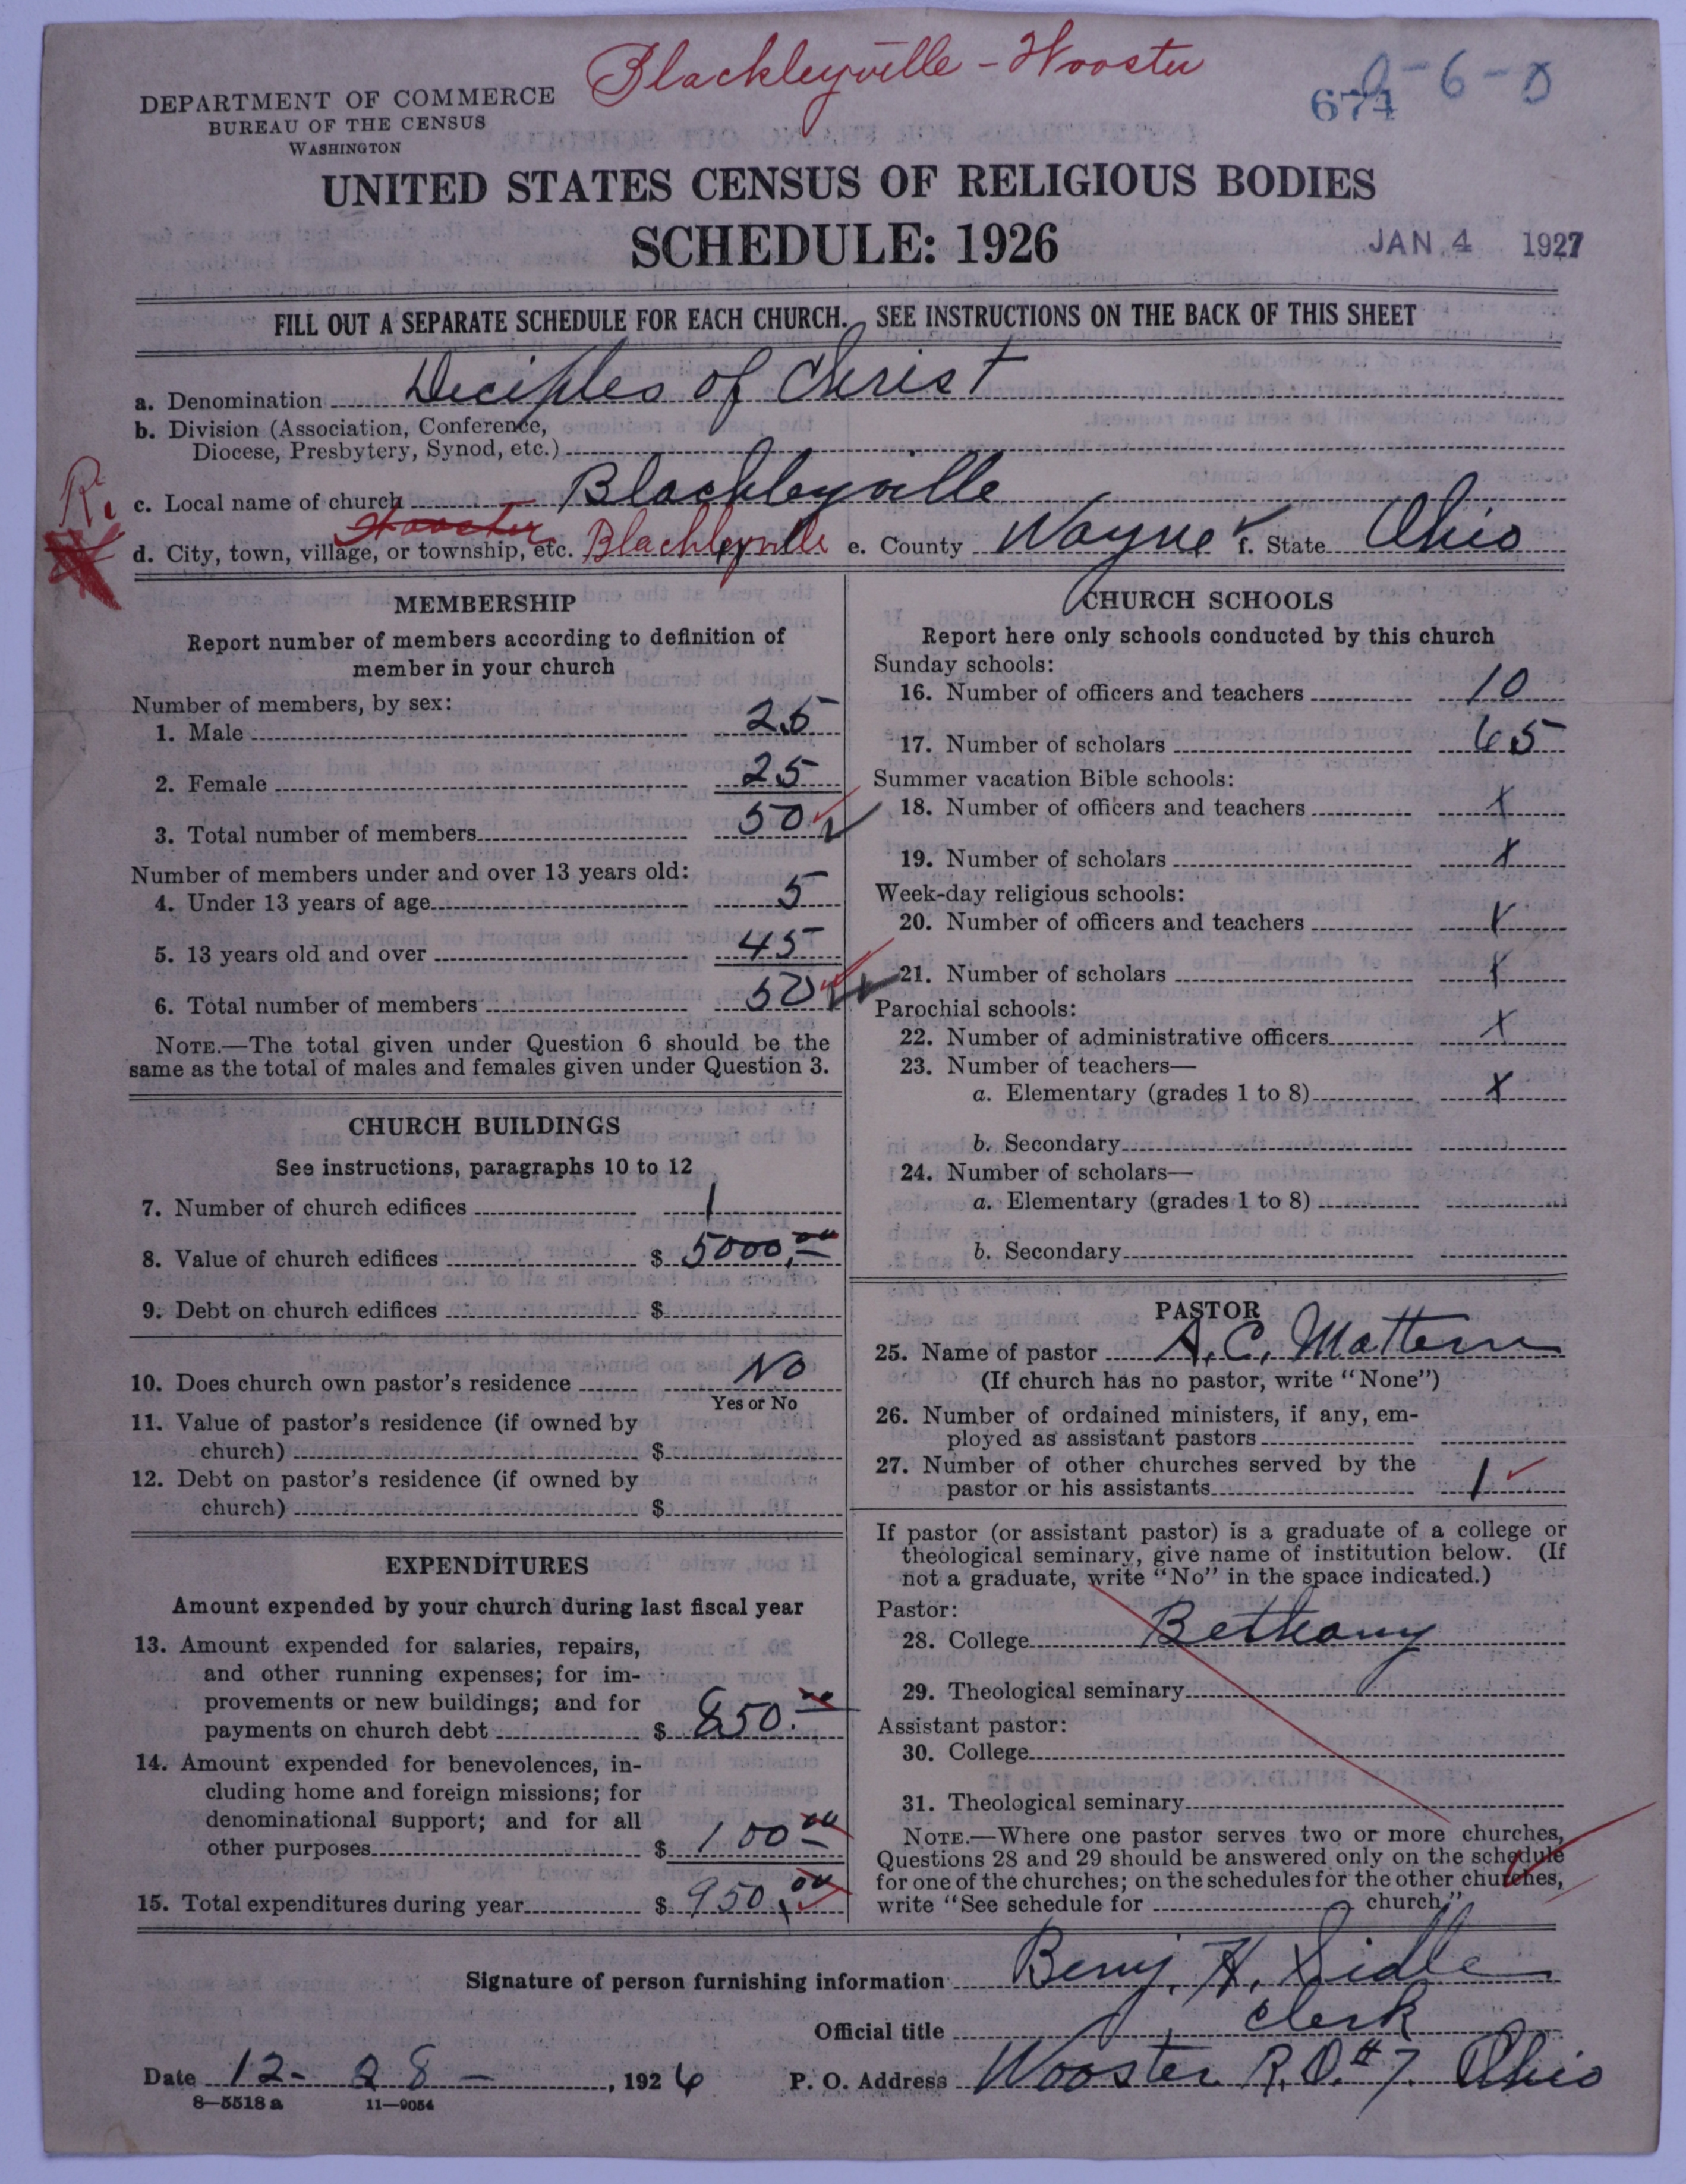 Blackleyville - Wooster
DEPARTMENT OF COMMERCE
BUREAU OF THE CENSUS
WASHINGTON
674
0-6-0
UNITED STATES CENSUS OF RELIGIOUS BODIES
SCHEDULE: 1926
JAN 4 1927
FILL OUT A SEPARATE SCHEDULE FOR EACH CHURCH. SEE INSTRUCTIONS ON THE BACK OF THIS SHEET
a. Denomination Deciples of Christ
b. Division (Association, Conference,
Diocese, Presbytery, Synod, etc.)
c. Local name of church Blachleyville
Wooster
d. City, town, village, or township, etc. Blachleyville e. County Wayne f. State Ohio
MEMBERSHIP
Report number of members according to definition of
member in your church
Number of members, by sex:
1. Male 25
2. Female 25
3. Total number of members 50
Number of members under and over 13 years old:
4. Under 13 years of age 5
5. 13 years old and over 45
6. Total number of members 50
NOTE.—The total given under Question 6 should be the
same as the total of males and females given under Question 3.
CHURCH BUILDINGS
See instructions, paragraphs 10 to 12
7. Number of church edifices 1
8. Value of church edifices $ 5000.00
9. Debt on church edifices $
10. Does church own pastor's residence No
Yes or No
11. Value of pastor's residence (if owned by
church) $
12. Debt on pastor's residence (if owned by
church) $
EXPENDITURES
Amount expended by your church during last fiscal year
13. Amount expended for salaries, repairs,
and other running expenses; for im-
provements or new buildings; and for
payments on church debt $ 850.00
14. Amount expended for benevolences, in-
cluding home and foreign missions; for
denominational support; and for all
other purposes $ 100.00
15. Total expenditures during year $ 950.00
CHURCH SCHOOLS
Report here only schools conducted by this church
Sunday schools:
16. Number of officers and teachers 10
17. Number of scholars 65
Summer vacation Bible schools:
18. Number of officers and teachers x
19. Number of scholars x
Week-day religious schools:
20. Number of officers and teachers x
21. Number of scholars x
Parochial schools:
22. Number of administrative officers x
23. Number of teachers—
a. Elementary (grades 1 to 8) x
b. Secondary
24. Number of scholars—
a. Elementary (grades 1 to 8)
b. Secondary
PASTOR
25. Name of pastor A. C. Mattern
(If church has no pastor, write "None")
26. Number of ordained ministers, if any, em-
ployed as assistant pastors
27. Number of other churches served by the
pastor or his assistants 1
If pastor (or assistant pastor) is a graduate of a college or
theological seminary, give name of institution below. (If
not a graduate, write "No" in the space indicated.)
Pastor:
28. College Bethany
29. Theological seminary
Assistant pastor:
30. College
31. Theological seminary
NOTE.—Where one pastor serves two or more churches,
Questions 28 and 29 should be answered only on the schedule
for one of the churches; on the schedules for the other churches,
write "See schedule for church."
Signature of person furnishing information Benj. H. Sidle
Official title Clerk
Date 12-28-, 1926 P. O. Address Wooster R.D.#7. Ohio
8—5518 a 11—9054